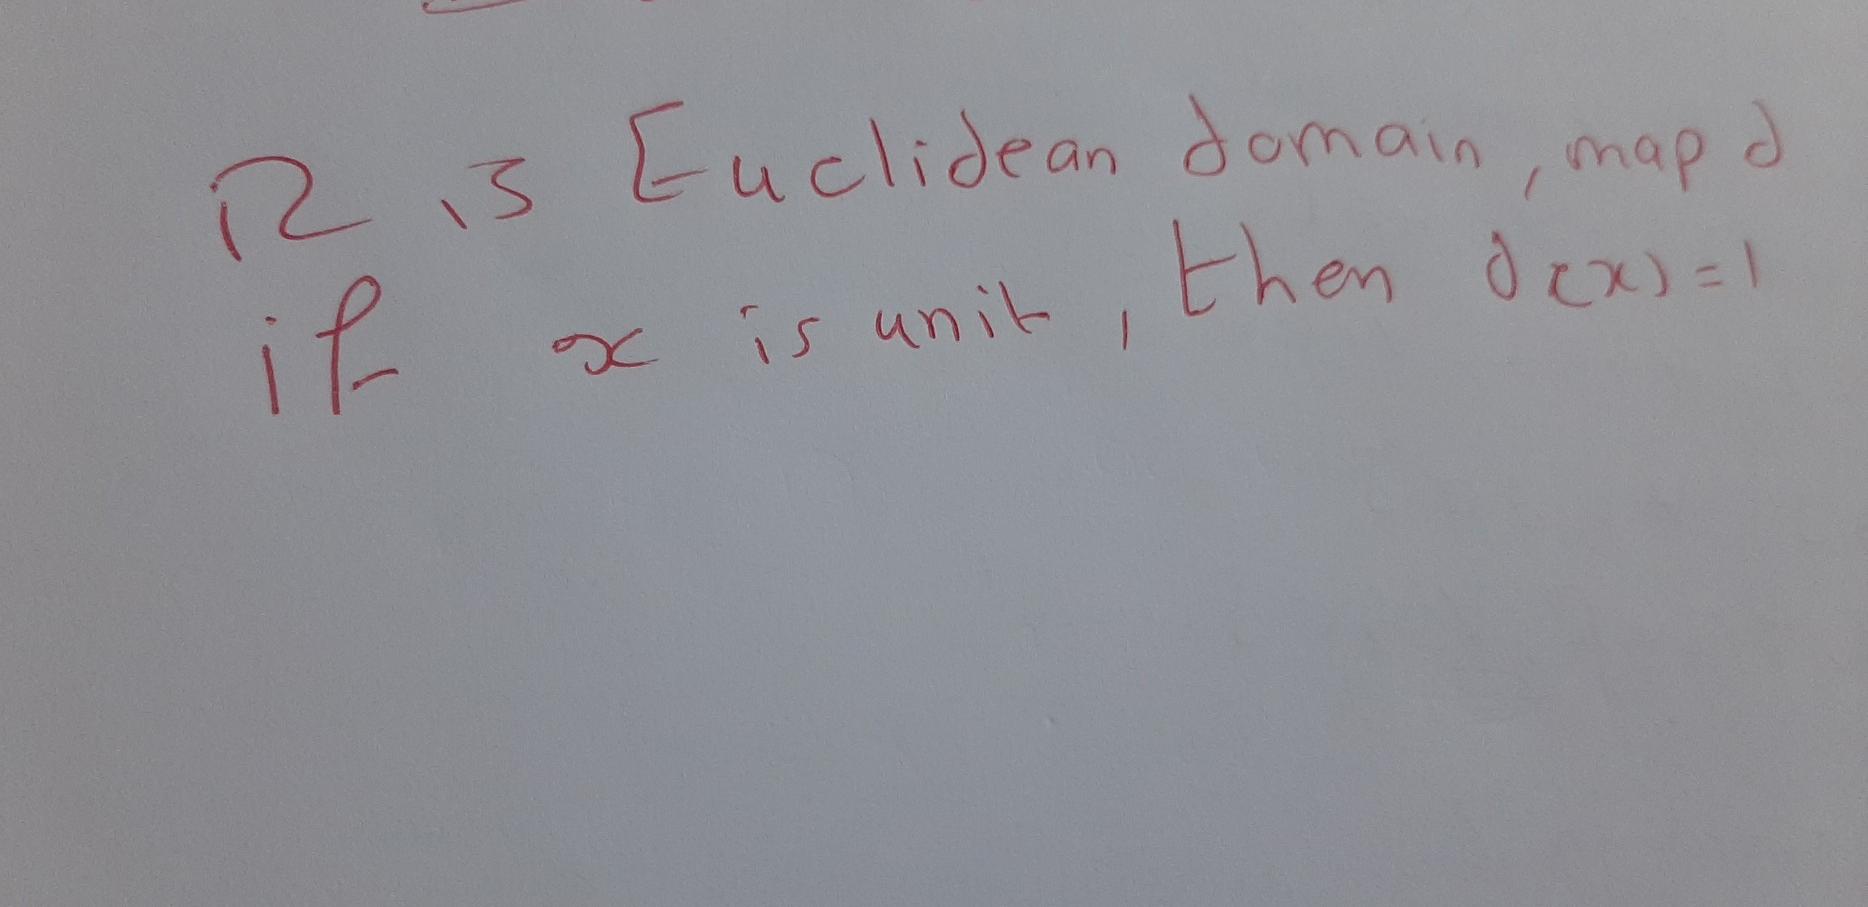 R is Euclidean domain, map d
if x is unit, then d(x)=1